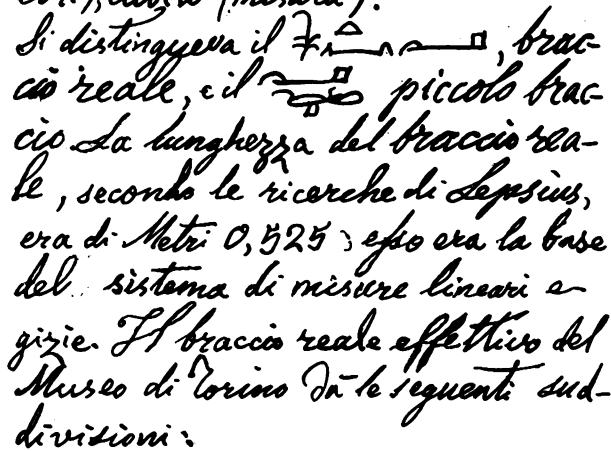 (misura).
Si distingueva il , brac-
cio reale, e il piccolo brac-
cio. La lunghezza del braccio rea-
le, secondo le ricerche di Lepsius,
era di Metri 0,525; esso era la base
del sistema di misure lineari e-
gizie. Il braccio reale effettivo del
Museo di Torino dà le seguenti sud-
divisioni: